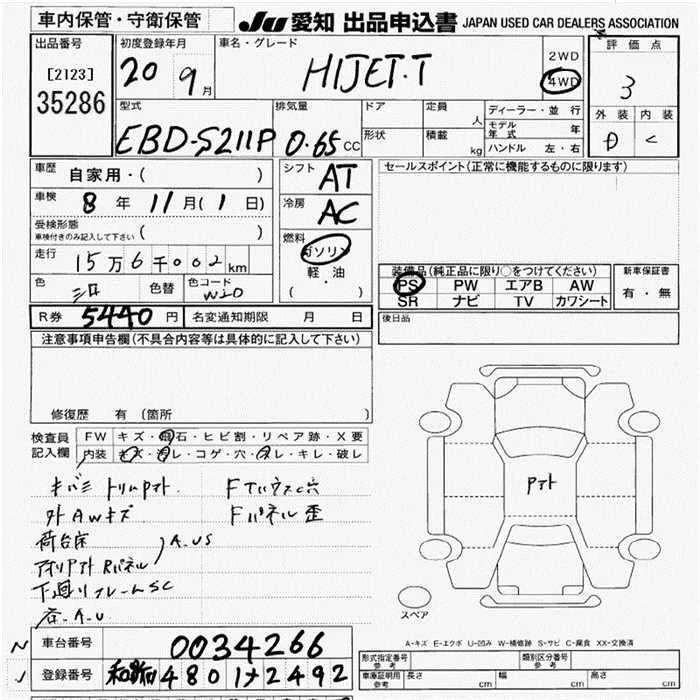 車内保管・守衛保管
JU 愛知 出品申込書 JAPAN USED CAR DEALERS ASSOCIATION
出品番号
[2123]
35286
初度登録年月
20 9月
車名・グレード
HIJET.T
2WD
4WD
評価点
3
外装 内装
D C
型式
EBD-S211P
排気量
0.65cc
ドア
形状
定員
人
積載
kg
ディーラー・並行
モデル年式 年
ハンドル 左・右
車歴
自家用・( )
車検
8年 11月(1日)
受検形態
車検付きのみ記入して下さい ( )
走行
15万6千002km
色
シロ
色替
色コード
W20
シフト
AT
冷房
AC
燃料
ガソリン
・
軽油
( )
R券 5440円 名変通知期限 月 日
セールスポイント(正常に機能するものに限ります)
装備品(純正品に限り○をつけてください)
PS PW エアB AW
SR ナビ TV カワシート
新車保証書
有・無
後日品
注意事項申告欄(不具合内容等は具体的に記入して下さい)
修復歴 有(箇所
検査員記入欄
FW キズ・飛石・ヒビ割・リペア跡・X要
内装 キズ・汚レ・コゲ・穴・スレ・キレ・破レ
キバミ トリムアオト. Fてハウスc穴
外 AWキズ Fパネル歪
荷台床
アオリアオト Rパネル A.US
下廻リフレームSC
谷.A.U
アオト
スペア
A-キズ E-エクボ U-凹み W-補修跡 S-サビ C-腐食 XX-交換済
車台番号 0034266
登録番号 和歌山 480 け 2492
形式指定番号
参考
類別区分番号
参考
車庫証明用
参考
長さ cm 幅 cm 高さ cm